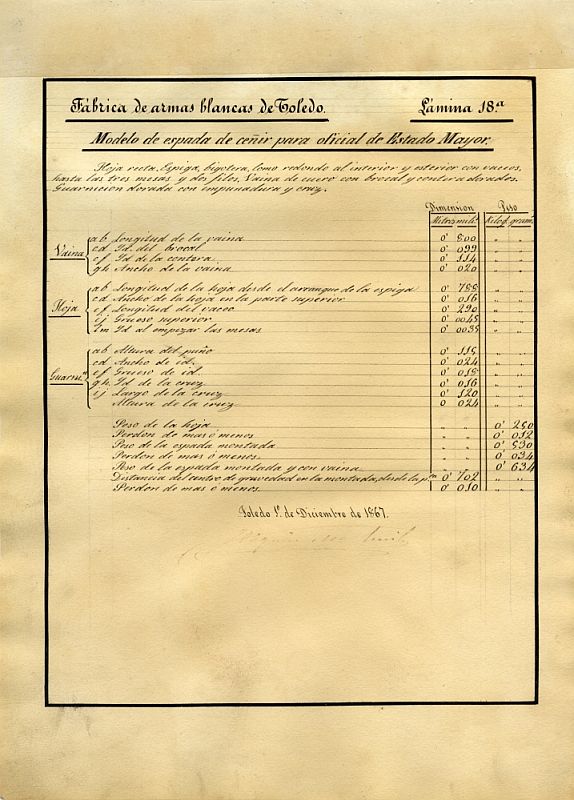 Fábrica de armas blancas de Toledo. Lámina 18.ª
Modelo de espada de ceñir para oficial de Estado Mayor.
Hoja recta, Espiga, bigotera, lomo redondo al interior y esterior con vaceos,
hasta las tres mesas y dos filos, Vaina de cuero con brocal y contera dorados.
Guarnicion dorada con empuñadura y cruz.
Dimension Peso
Metros mils. Kilog. gram.
Vaina
ab Longitud de la vaina 0' 800 " "
cd Id. del brocal 0' 099 " "
ef Id de la contera 0' 114 " "
gh Ancho de la vaina 0' 020 " "
Hoja
ab Longitud de la hoja desde el arranque de la espiga 0' 788 " "
cd Ancho de la hoja en la parte superior 0' 016 " "
ef Longitud del vaceo 0' 290 " "
ij Grueso superior 0' 0045 " "
lm Id al empezar las mesas 0' 0035 " "
Guarnn.
ab Altura del puño 0' 115 " "
cd Ancho de id. 0' 024 " "
ef Grueso de id. 0' 018 " "
gh Id de la cruz 0' 016 " "
ij Largo de la cruz 0' 120 " "
Altura de la cruz 0' 024 " "
Peso de la hoja " " 0' 250
Perdon de mas ó menos " " 0' 012
Peso de la espada montada " " 0' 530
Perdon de mas ó menos " " 0' 034
Peso de la espada montada y con vaina " " 0' 634
Distancia del centro de gravedad en la montada, desde la 0' 702 " "
Perdon de mas ó menos 0' 010 " "
Toledo 1º. de Diciembre de 1867.